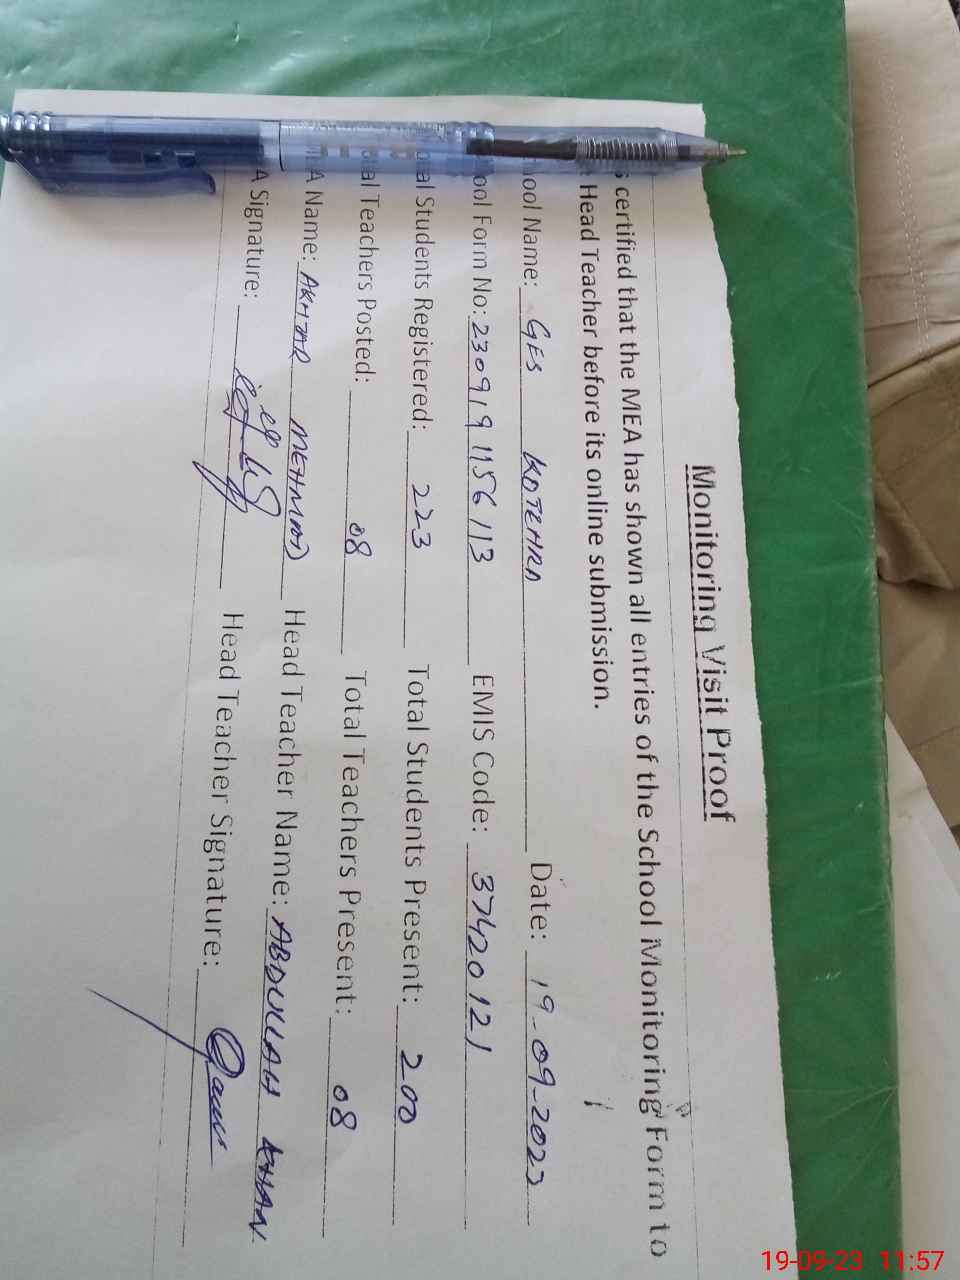 Monitoring Visit Proof
certified that the MEA has shown all entries of the School Monitoring Form to
Head Teacher before its online submission.
ool Name: GES KOTEHRA Date: 19-09-2023
ool Form No: 230919115613 EMIS Code: 37420121
al Students Registered: 223 Total Students Present: 200
al Teachers Posted: 08 Total Teachers Present: 08
A Name: AKHTAR MEHMOOD Head Teacher Name: ABDULLAH KHAN
A Signature: Head Teacher Signature:
19-09-23 11:57